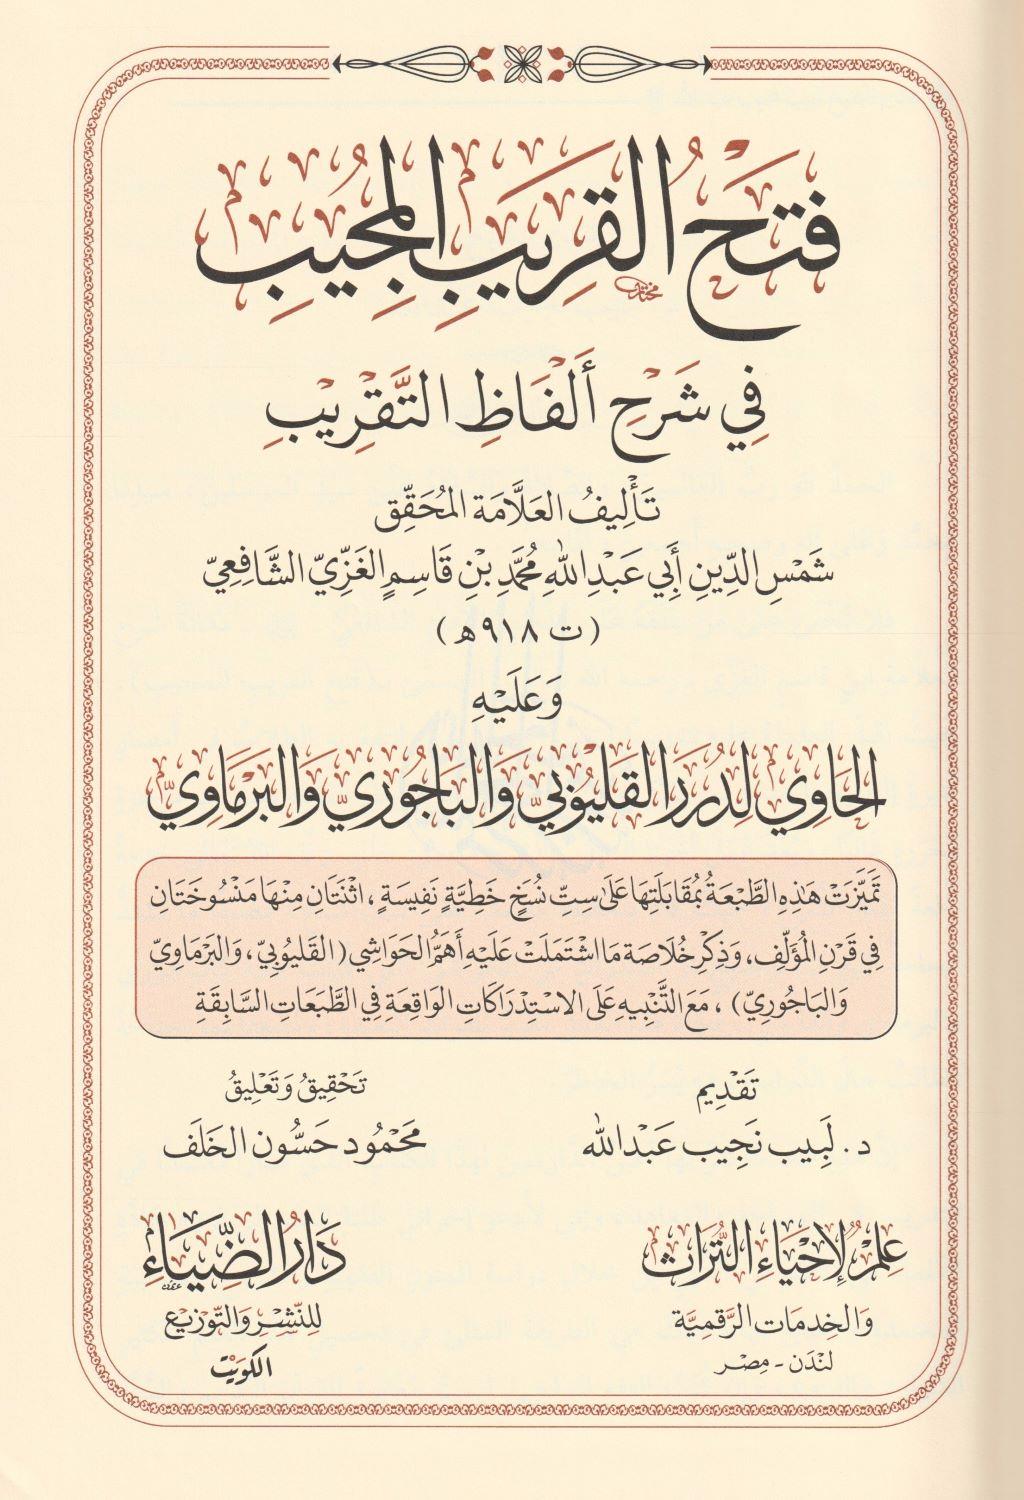 فَتْحُ القَرِيبِ المُجِيبِ
فِي شَرْحِ أَلْفَاظِ التَّقْرِيبِ
تَأْلِيفُ العَلَّامَة المُحَقِّق
شَمْسِ الدِّينِ أَبِي عَبْدِ اللهِ مُحَمَّدِ بْنِ قَاسِمٍ الغَزِّيّ الشَّافِعِيّ
(ت ٩١٨ هـ)
وَعَلَيْهِ
الحَاوِي لِدُرَرِ القَلْيُوبِيّ وَالبَاجُورِيّ وَالبَرْمَاوِيّ
تَمَيَّزَتْ هَذِهِ الطَّبْعَةُ بِمُقَابَلَتِهَا عَلَى سِتِّ نُسَخٍ خَطِيَّةٍ نَفِيسَةٍ، اثْنَتَانِ مِنْهَا مَنْسُوخَتَانِ
فِي قَرْنِ المُؤَلِّفِ، وَذِكْرِ خُلَاصَةِ مَا اشْتَمَلَتْ عَلَيْهِ أَهَمُّ الحَوَاشِي (القَلْيُوبِيّ، وَالبَرْمَاوِيّ
وَالبَاجُورِيّ)، مَعَ التَّنْبِيهِ عَلَى الاسْتِدْرَاكَاتِ الوَاقِعَةِ فِي الطَّبَعَاتِ السَّابِقَةِ
تَقْدِيم
د. لَبِيب نَجِيب عَبْدالله
تَحْقِيقُ وَتَعْلِيقُ
مَحْمُود حَسُّون الخَلَف
عِلْم لإِحْيَاءِ التُّرَاثِ
وَالخِدمَات الرَّقمِيَّة
لَنْدَن - مِصْر
دَارُ الضِّيَاءِ
لِلنَّشْرِ وَالتَّوْزِيع
الكُوَيْت